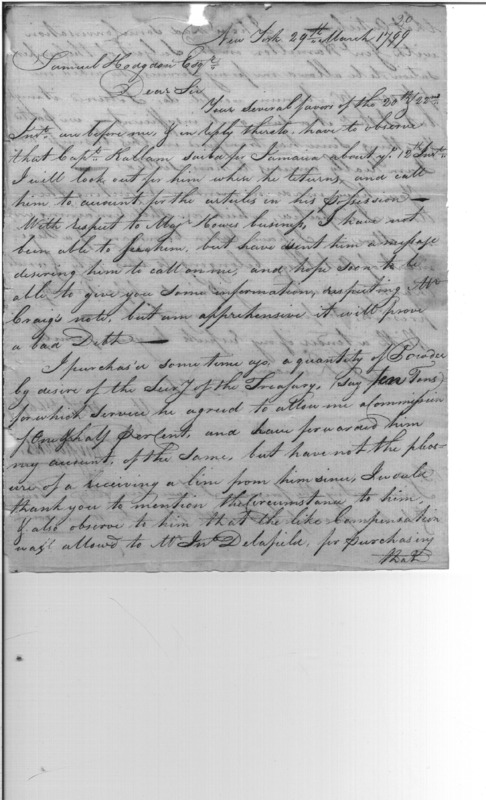 New York 29th March 1799
Samuel Hodgdon Esqr.
Dear Sir
Your several favors of the 20th & 22nd
Inst. are before me, & in reply thereto, have to observe
that Capt. Kallam sails for Jamaica about ye. 12th Inst.
I will look out for him when he returns, and call
him to account, for the articles in his possession —
With respect to Majr Howes business, I have not
been able to see him, but have sent him a message
desiring him to call on me, and hope soon to be
able to give you some information, respecting Mr
Craig's note, but am apprehensive it will prove
a bad Debt —
I purchas'd some time ago, a quantity of Powder
by desire of the Secry of the Treasury, (Say Ten Tons)
for which service he agreed to allow me a Commission
of One & half PerCent, and have forwarded him
my account, of the same, but have not the pleas-
ure of a receiving a line from him since, I would
thank you to mention the Circumstance to him,
& also observe to him that the like Compensation
was allowed to Mr Jno. Delafield, for purchasing
that